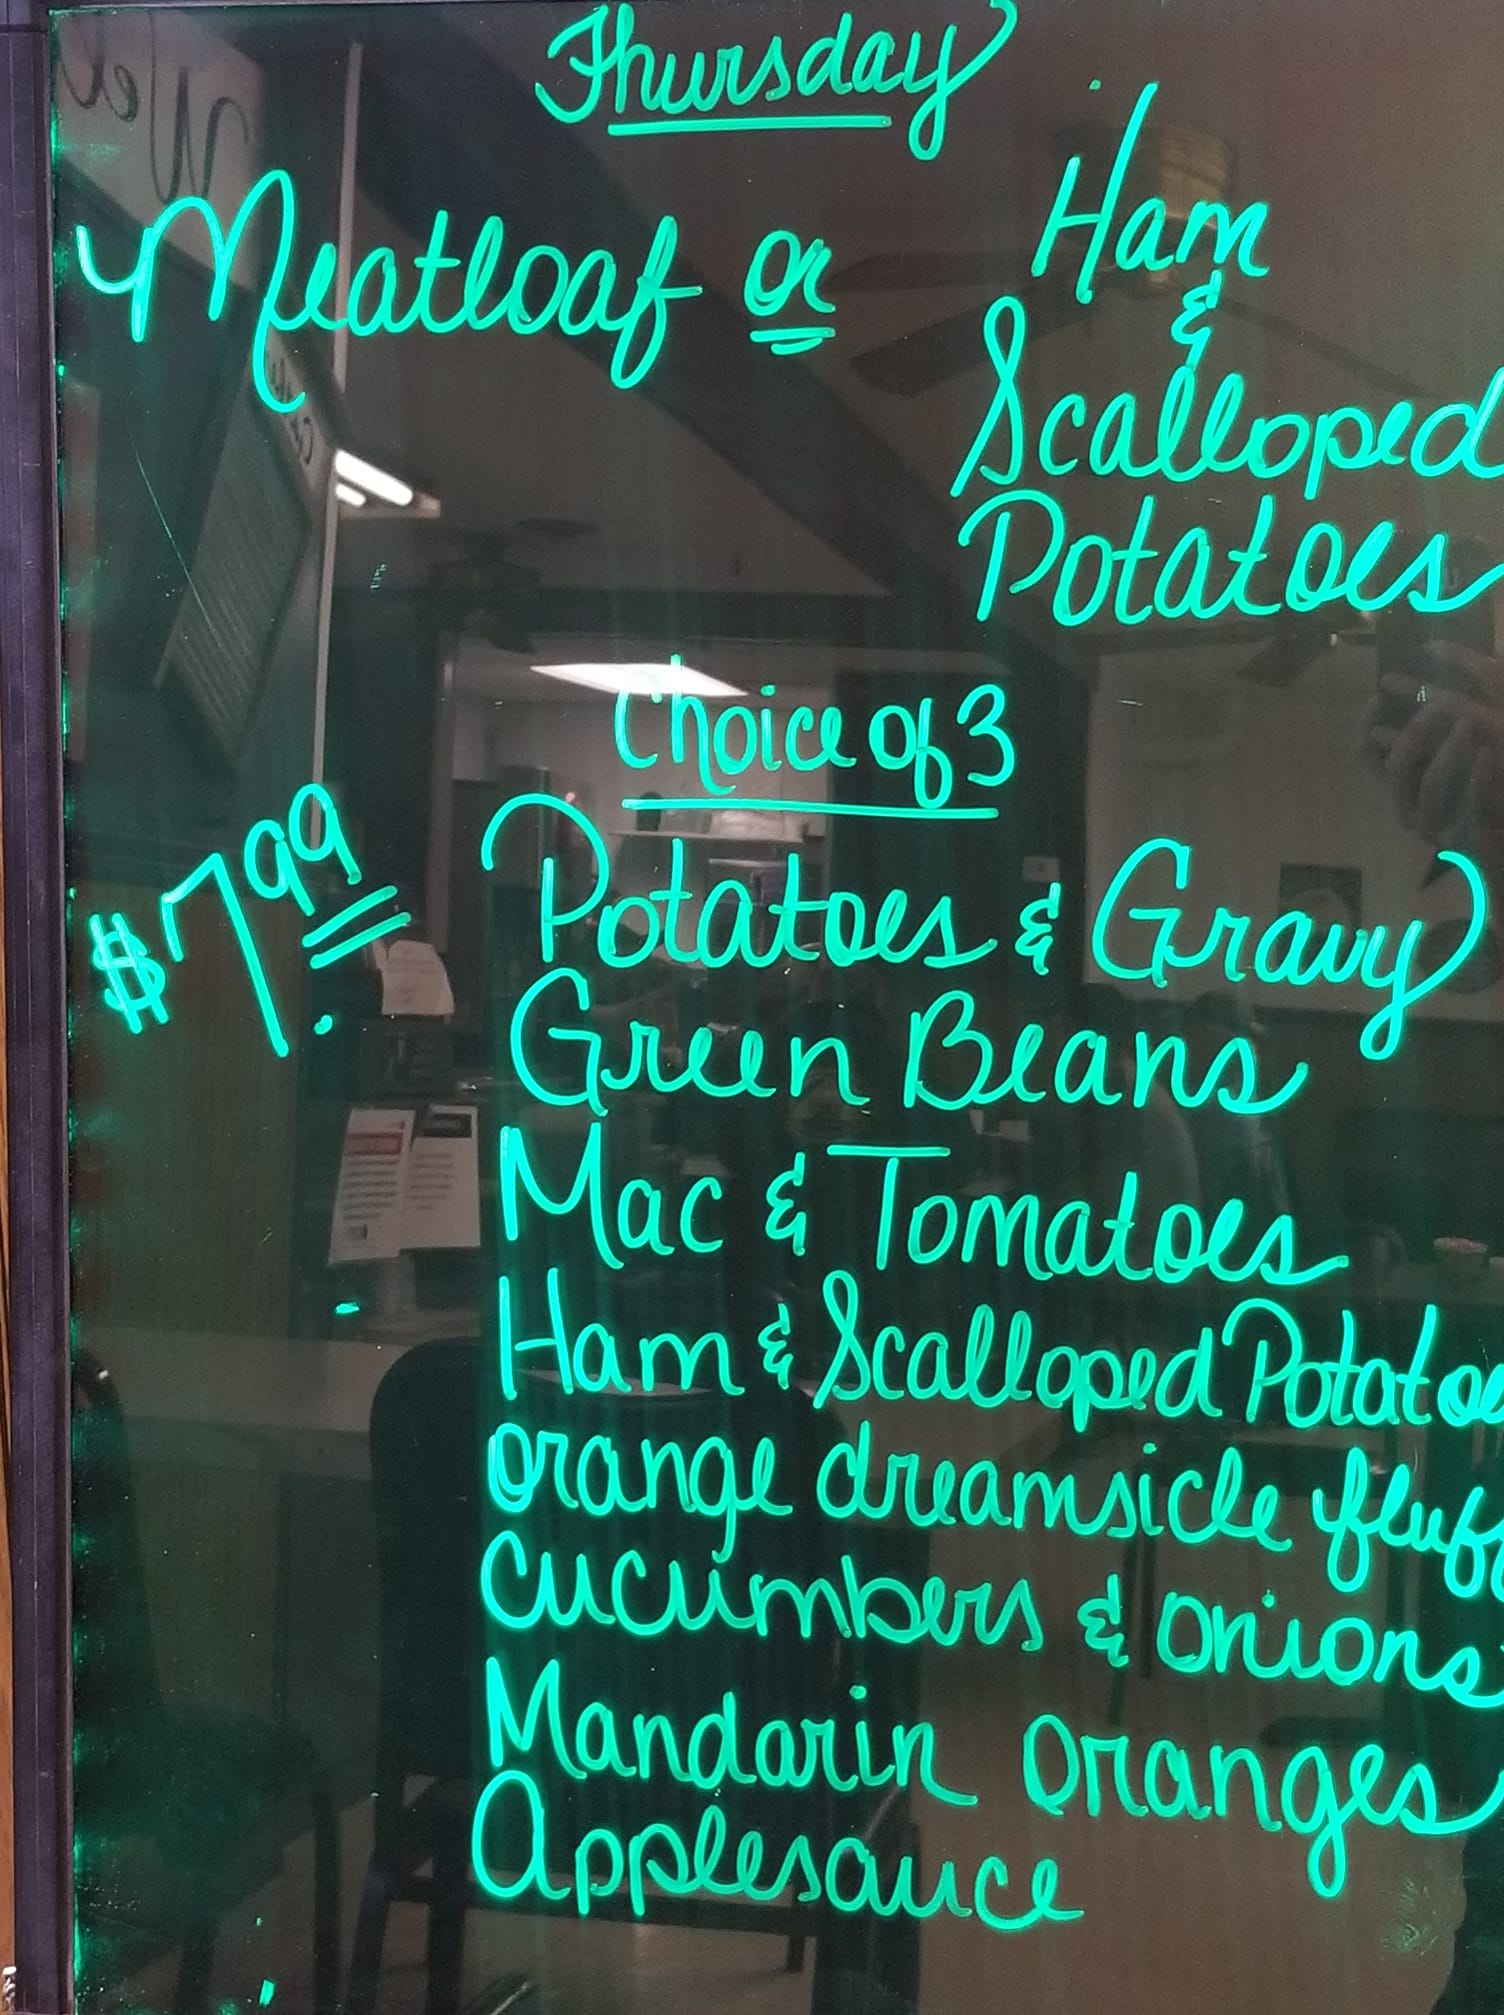 Thursday
Meatloaf or
Ham
&
Scalloped
Potatoes
Choice of 3
$7.99
Potatoes & Gravy
Green Beans
Mac & Tomatoes
Ham & Scalloped Potatoe
orange dreamsicle fluff
Cucumbers & onions
Mandarin oranges
Applesauce